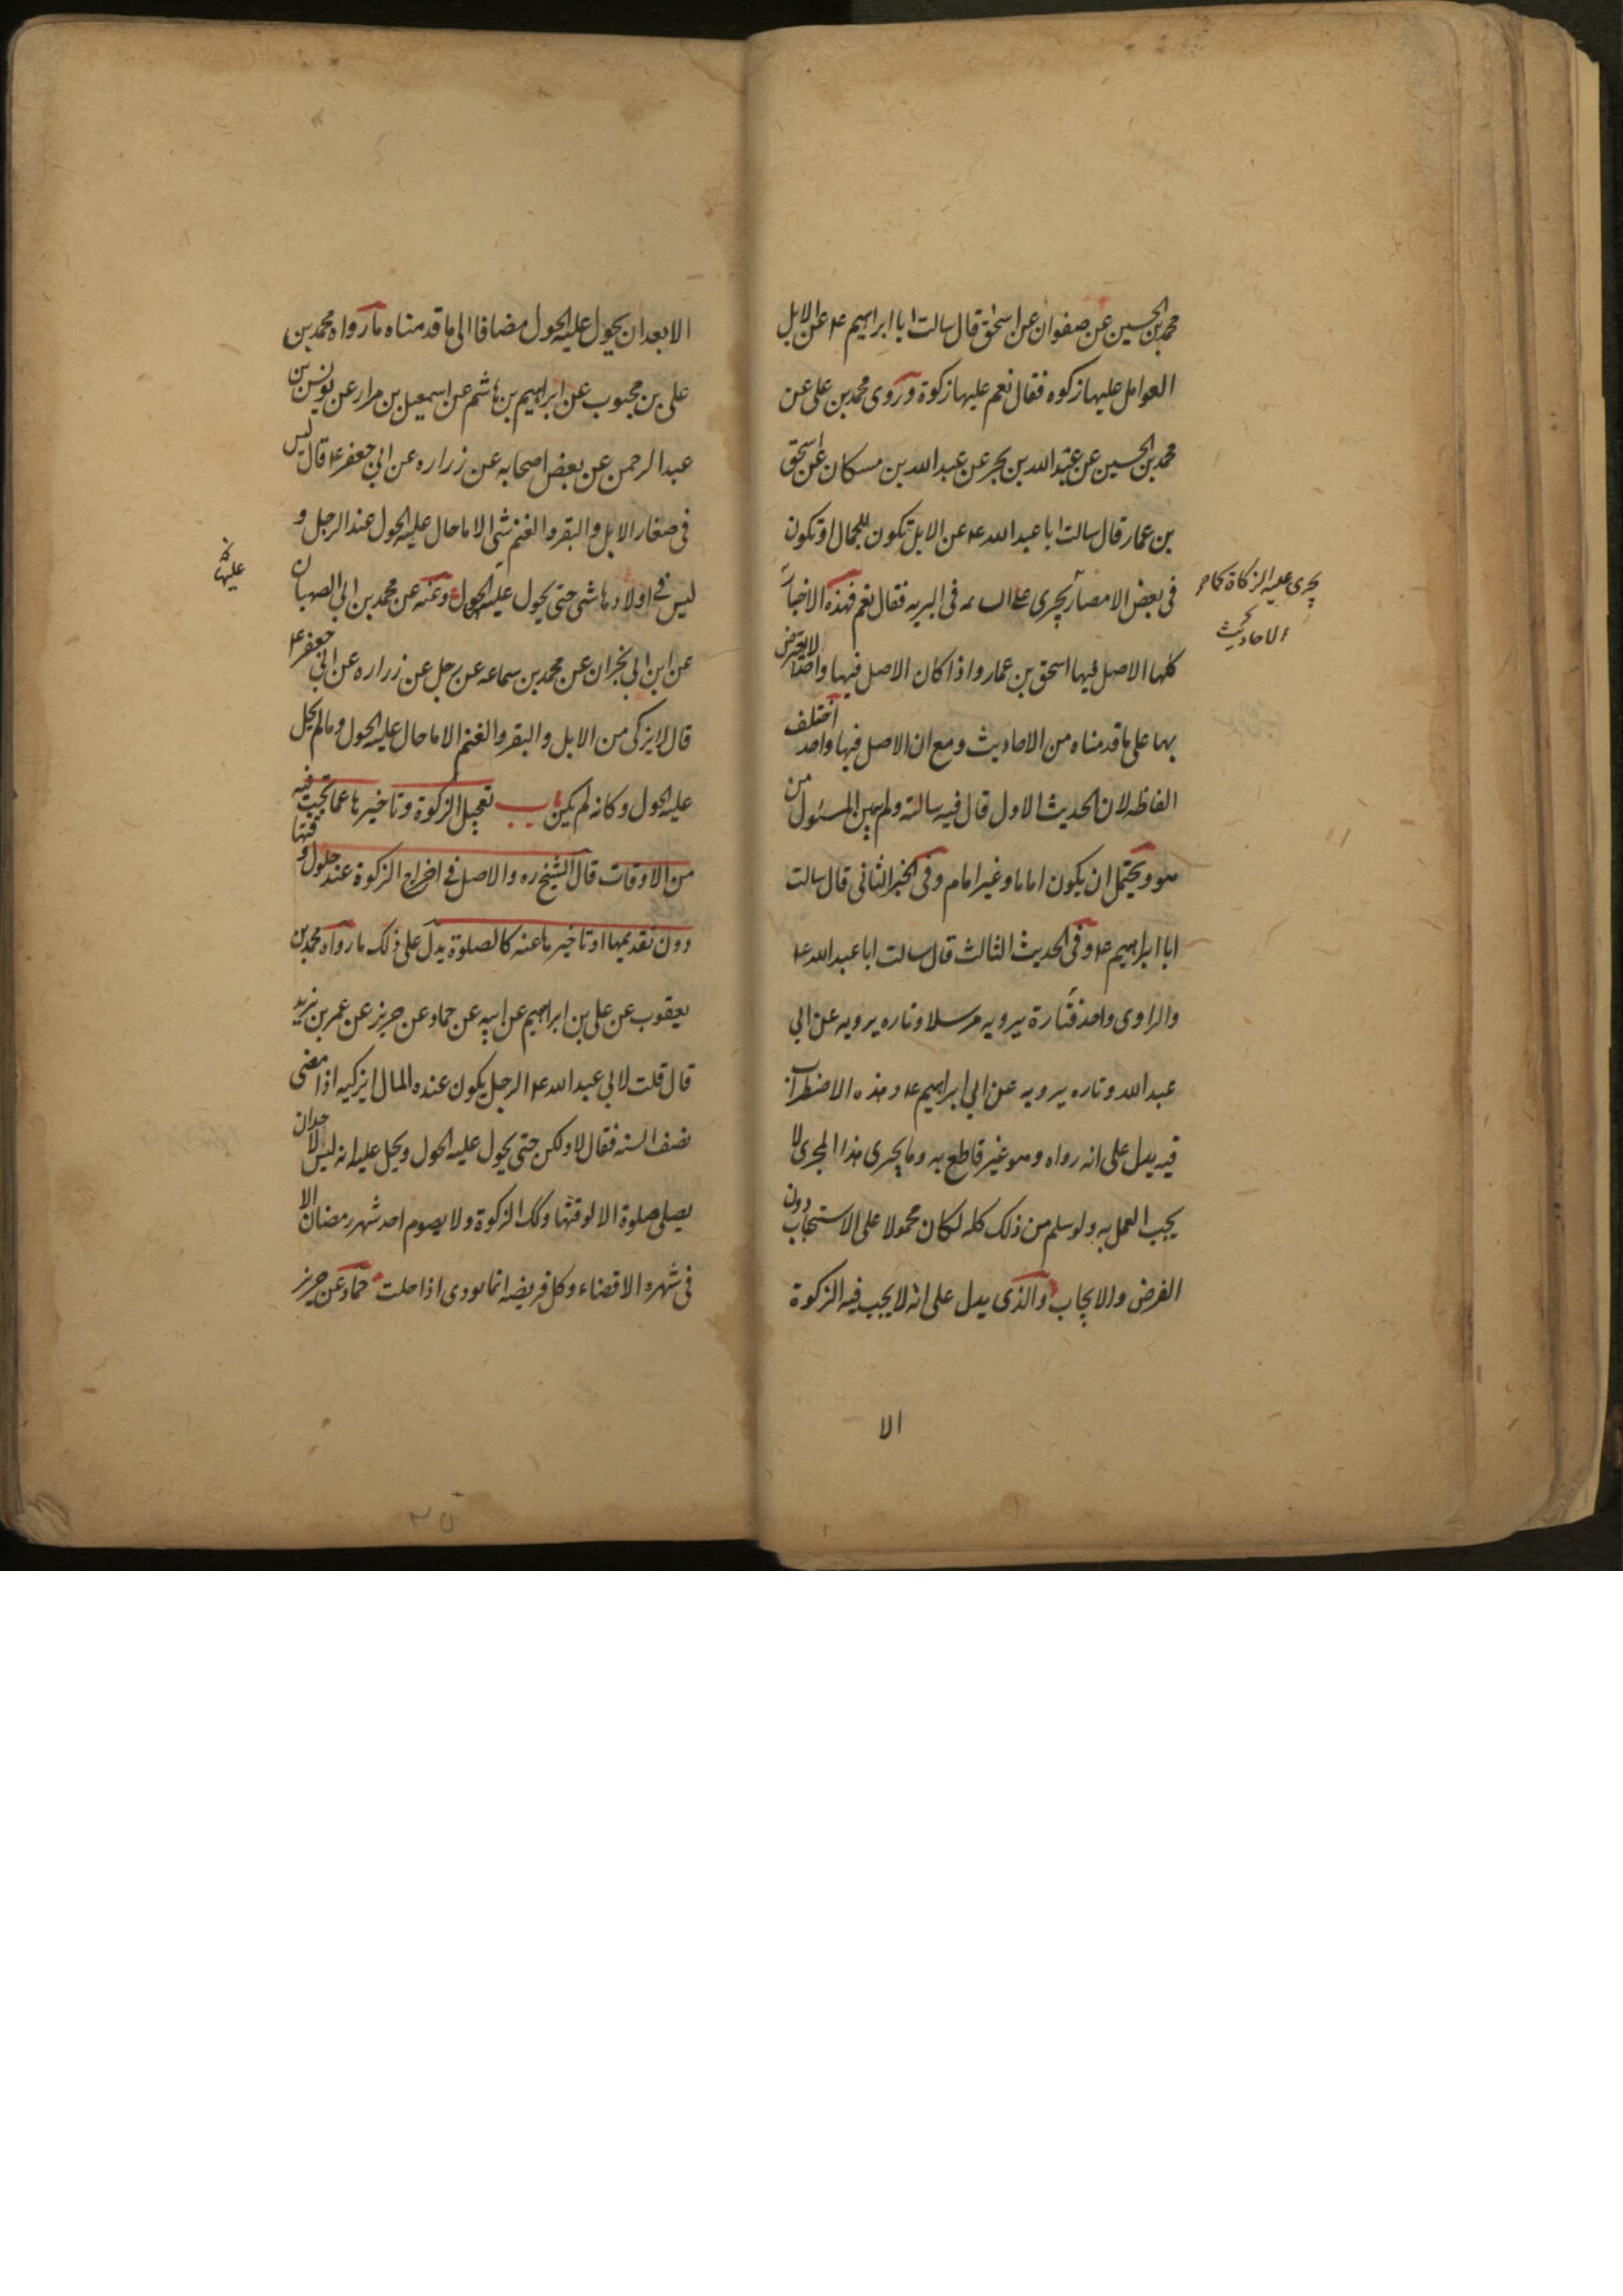 محمد بن الحسين عن صفوان عن اسحق قال سالت ابا ابراهيم ع عن الابل
العوامل عليها زكوه فقال نعم عليها زكوة وروى محمد بن على عن
محمد بن الحسين عن عبد الله بن بحر عن عبد الله بن مسكان عن اسحق
بن عمار قال سالت ابا عبد الله ع عن الابل تكون للجمال او تكون
فى بعض الامصار تجرى على السائمه فى البريه فقال نعم فهذه الاخبار
كلها الاصل فيها اسحق بن عمار واذا كان الاصل فيها واحدا لا يعترض
بها على ما قدمناه من الاحاديث ومع ان الاصل فيها واحد اختلف
الفاظه لان الحديث الاول قال فيه سالته ولم يبين المسئول من
هو ويحتمل ان يكون اماما وغير امام وفى الخبر الثانى قال سالت
ابا ابراهيم ع وفى الحديث الثالث قال سالت ابا عبد الله ع
والراوى واحد فتارة يرويه مرسلا وتاره يرويه عن ابي
عبد الله وتاره يرويه عن ابي ابراهيم ع وهذه الاضطراب
فيه يدل على انه رواه وهو غير قاطع به وما يجرى هذا المجرى لا
يجب العمل به ولو سلم من ذلك كله لكان محمولا على الاستحباب دون
الفرض والايجاب والذى يدل على انه لا يجب فيه الزكوة
الا
يجرى عليه الزكاة كما
الاحاديث
الا بعد ان يحول عليه الحول مضافا الى ما قدمناه ما رواه محمد بن
على بن محبوب عن ابراهيم بن هاشم عن اسمعيل بن مرار عن يونس بن
عبد الرحمن عن بعض اصحابه عن زراره عن ابي جعفر ع قال ليس
فى صغار الابل والبقر والغنم شى الا ما حال عليه الحول عند الرجل و
ليس في اولادها شى حتى يحول عليه الحول وعنه عن محمد بن ابي الصهبان
عن ابن ابي نجران عن محمد بن سماعه عن رجل عن زراره عن ابي جعفر ع
قال لا يزكى من الابل والبقر والغنم الا ما حال عليه الحول وما لم يحل
عليه الحول وكانه لم يكن باب تعجيل الزكوة وتاخيرها عما تجب فيه
من الاوقات قال الشيخ ره والاصل في اخراج الزكوة عند حلول وقتها
دون تقديمها او تاخيرها عنه كالصلوة يدل على ذلك ما رواه محمد بن
يعقوب عن على بن ابراهيم عن ابيه عن حماد عن حريز عن عمر بن يزيد
قال قلت لابي عبد الله ع الرجل يكون عنده المال ايزكيه اذا مضى
نصف السنه فقال لا ولكن حتى يحول عليه الحول ويحل عليه انه ليس لاحد ان
يصلى صلوة الا لوقتها وكك الزكوة ولا يصوم احد شهر رمضان الا
فى شهره الا قضاء وكل فريضه انما تودى اذا حلت حماد عن حريز
عليها